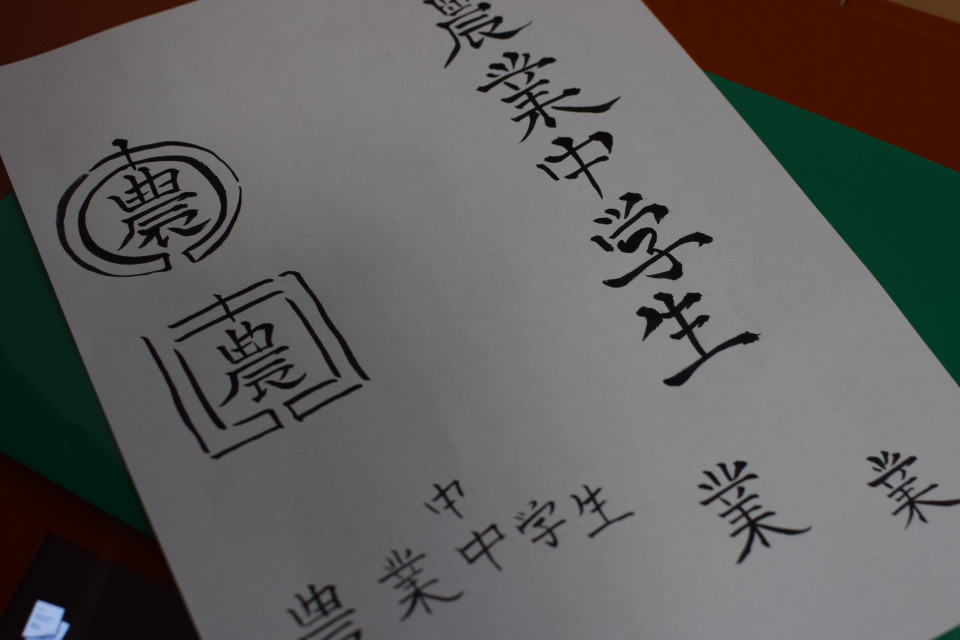 農業中学生
農
農
中
農業中学生
業
業